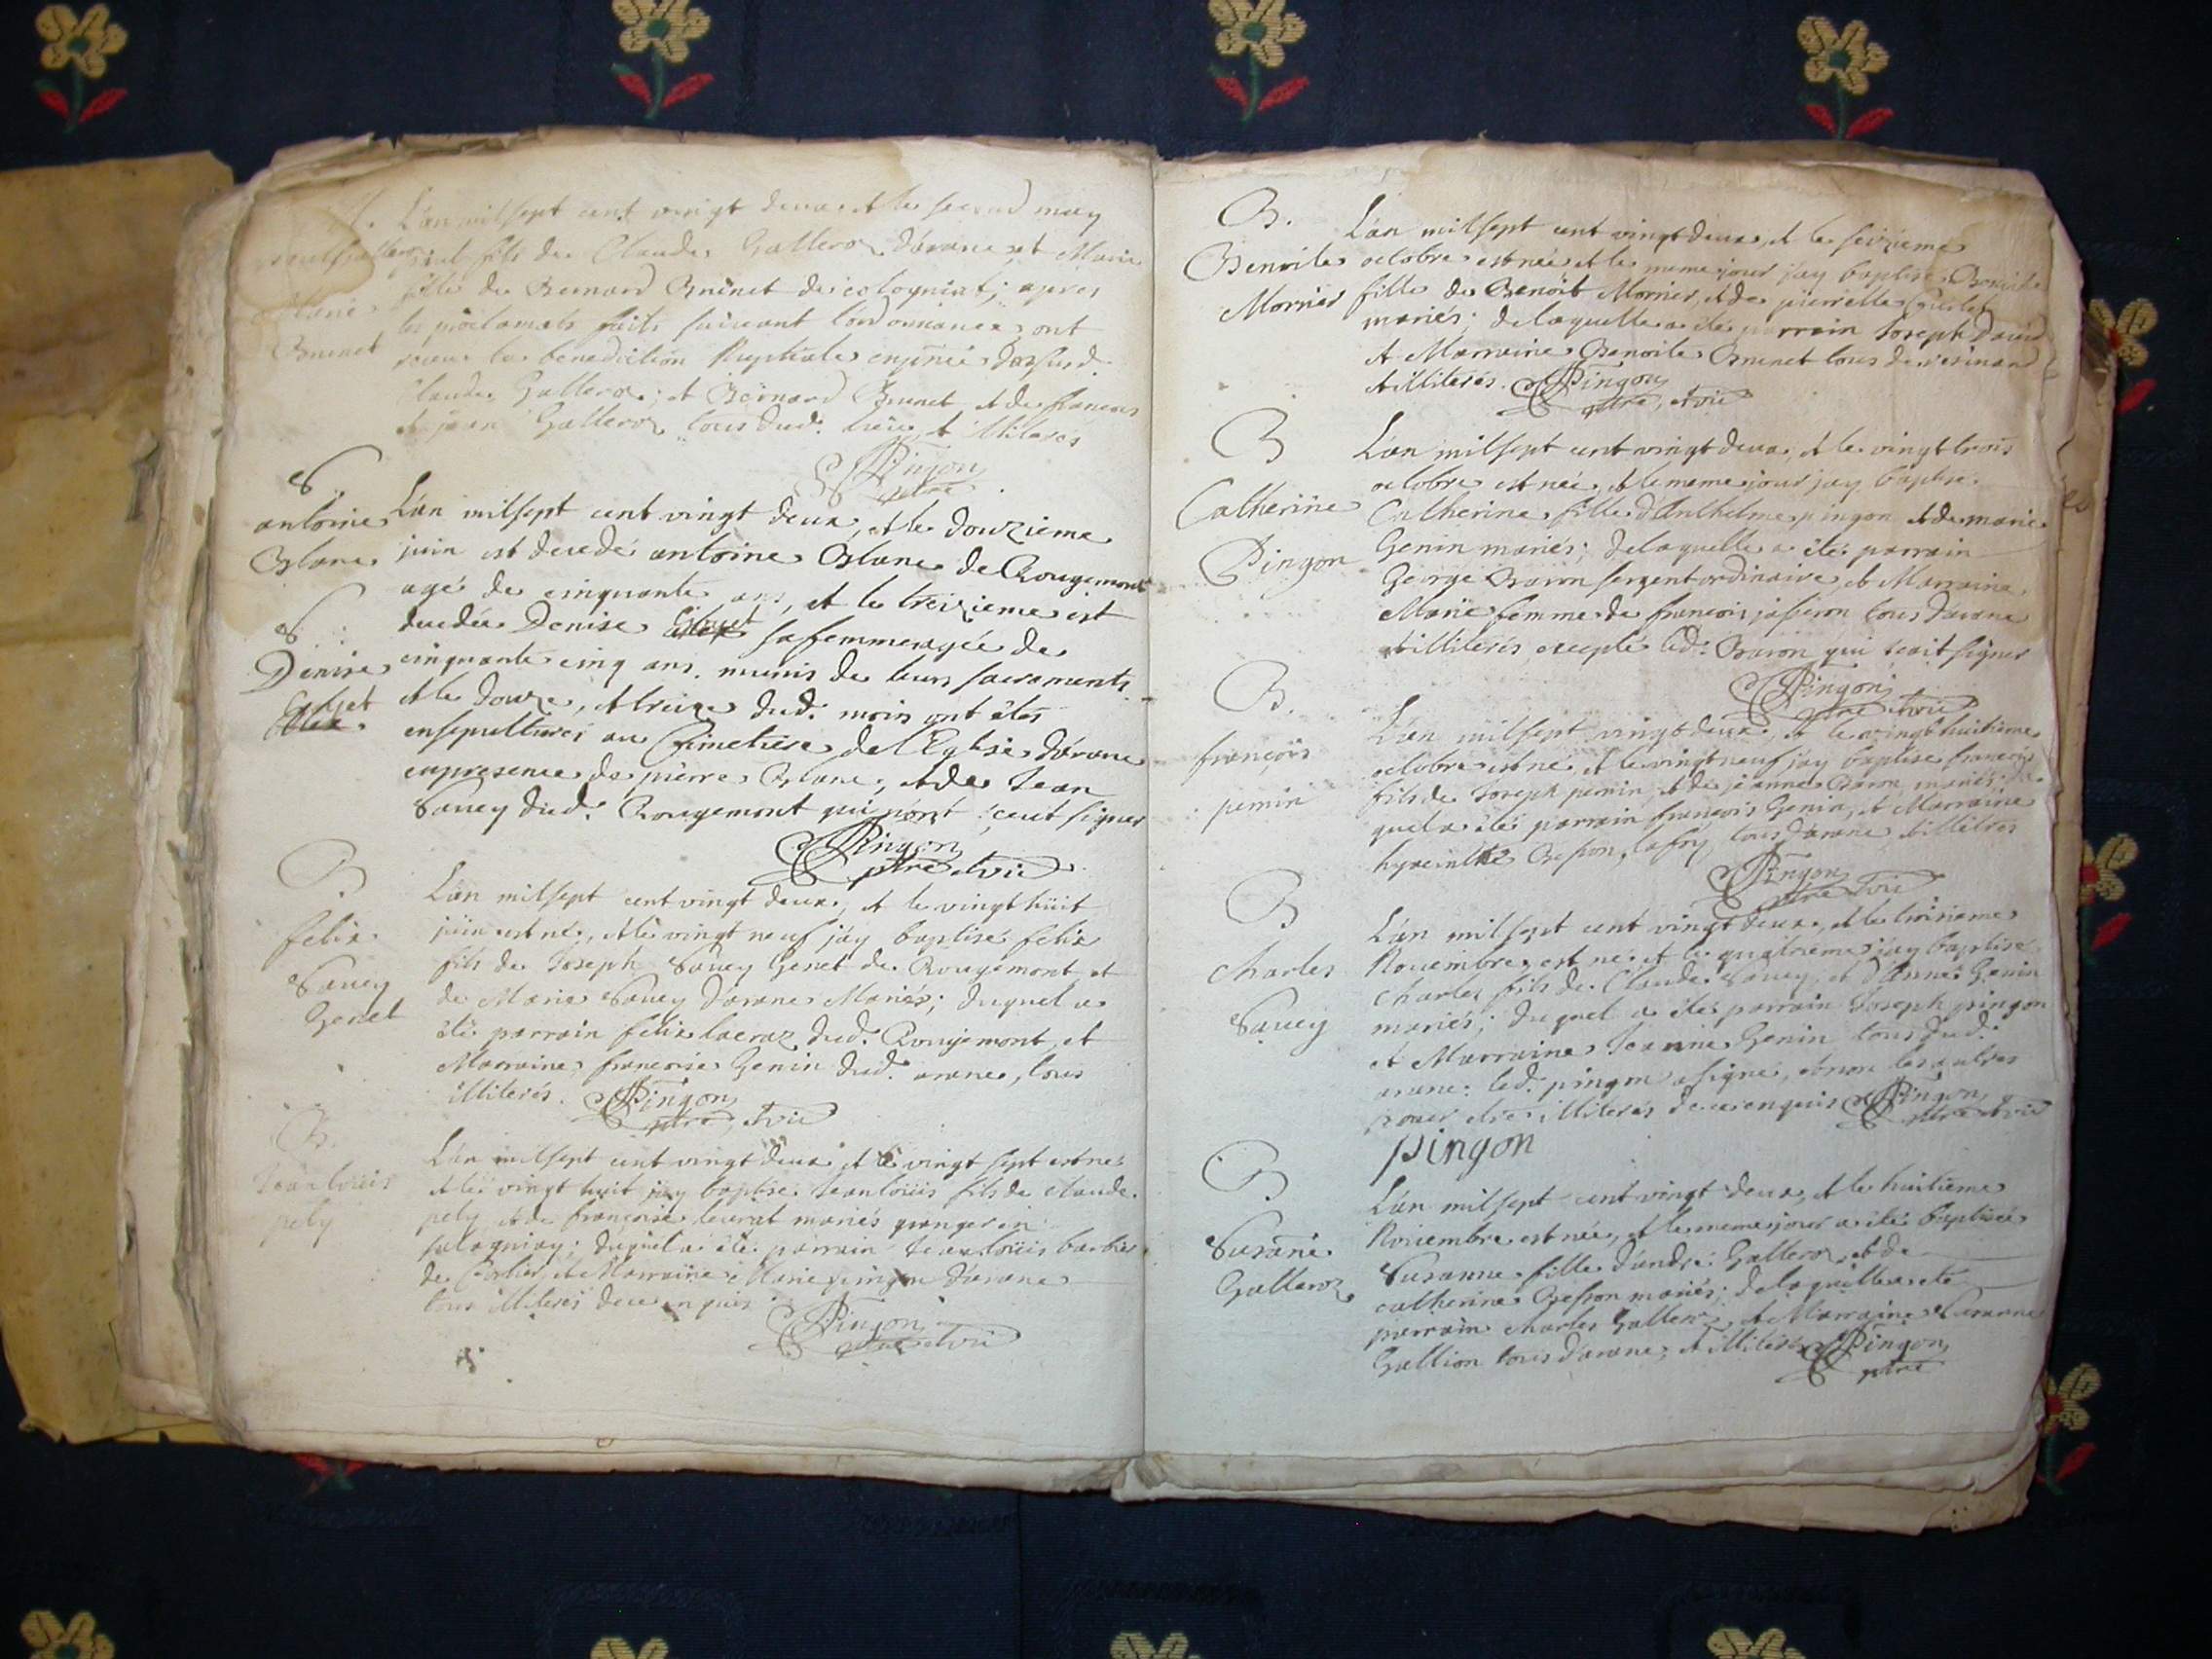 L'an mil sept cent vingt deux et le second may
fils de Claude Galleroz d'arane et Marie
Marie
fille de Bernard Brunet de cologniat; apres
les proclamats faits suivant l'ordonnance ont
Brunet
receu la benediction Nuptiale
Claude Galleroz; et Bernard Brunet et de francois
et jean Galleroz tous dud. lieu, et illiterés
Pingon
ptre
S.
antoine
Blanc
L'an mil sept cent vingt deux, et le douzieme
juin est decedé antoine Blanc de Rougemont
agé de cinquante ans, et le treizieme est
S
Denise
decedée Denise sa femme agée de
cinquante cinq ans. munis de leurs sacraments
et le douze, et treize dud. mois ont étés
ensepulturés au Cimetiere de l'Eglise d'arane
en presence de pierre Blanc, et de Jean
Savey dud. Rougemont qui n'ont sceut signer
Pingon
ptre et vic
B.
felix
Savey
Genet
L'an mil sept cent vingt deux, et le vingt huit
juin est né, et le vingt neuf j'ay baptisé felix
fils de Joseph Savey Genet de Rougemont et
de Marie Savey d'arane Mariés; duquel a
été parrain felix lacraz dud. Rougemont, et
Marraine francoise Genin dud. arane, tous
illiterés. Pingon
ptre et vic
B.
Jean loüis
pely
L'an mil sept cent vingt deux et le vingt sept est né
et le vingt huit j'ay baptisé Jean loüis fils de claude
pely et de francoise mariés granger en
duquel a été parrain Jean loüis
de Corlier, et Marraine Marie pingon d'arane
tous illiterés de ce enquis
Pingon
ptre et vic
B.
Benoite
Mornier
L'an mil sept cent vingt deux, et le seizieme
octobre est née et le meme jour j'ay baptisé Benoite
fille de Benoit Mornier, et de pierrette
mariés; de laquelle a été parrain Joseph David
et Marraine Benoite Brunet tous de
et illiterés. Pingon
ptre, et vic
B
Catherine
Pingon
L'an mil sept cent vingt deux, et le vingt trois
octobre est née, et le meme jour j'ay baptisé
Catherine fille d'Anthelme pingon et de marie
Genin mariés; de laquelle a été parrain
George Baron sergent ordinaire, et Marraine
Marie femme de francois tous d'arane
et illiterés excepté led. Baron qui scait signer
Pingon
ptre et vic
B.
françois
pernin
L'an mil sept vingt deux et le vingt huitieme
octobre est né, et le vingt neuf j'ay baptisé françois
fils de Joseph pernin, et de jeanne Baron mariés; du
quel a été parrain françois Genin, et Marraine
hyacinthe tous d'arane illitérés
Pingon
ptre et vic
B
Charles
Savey
L'an mil sept cent vingt deux, et le troisieme
Novembre est né et le quatrieme j'ay baptisé
charles fils de Claude Savey, et d'Anne Genin
mariés; duquel a été parrain Joseph pingon
et Marraine Jeanne Genin tous dud.
arane. led. pingon a signé, et non les autres
pour etre illiterés de ce enquis Pingon
ptre et vic
pingon
B
Susanne
Galleroz
L'an mil sept cent vingt deux, et le huitieme
Novembre est née, et le meme jour a été baptisée
Susanne fille d'andré Galleroz, et de
catherine Besson mariés; de laquelle a été
parrain charles Galleroz, et Marraine Susanne
Gallion tous d'arane, et illiterés Pingon
ptre